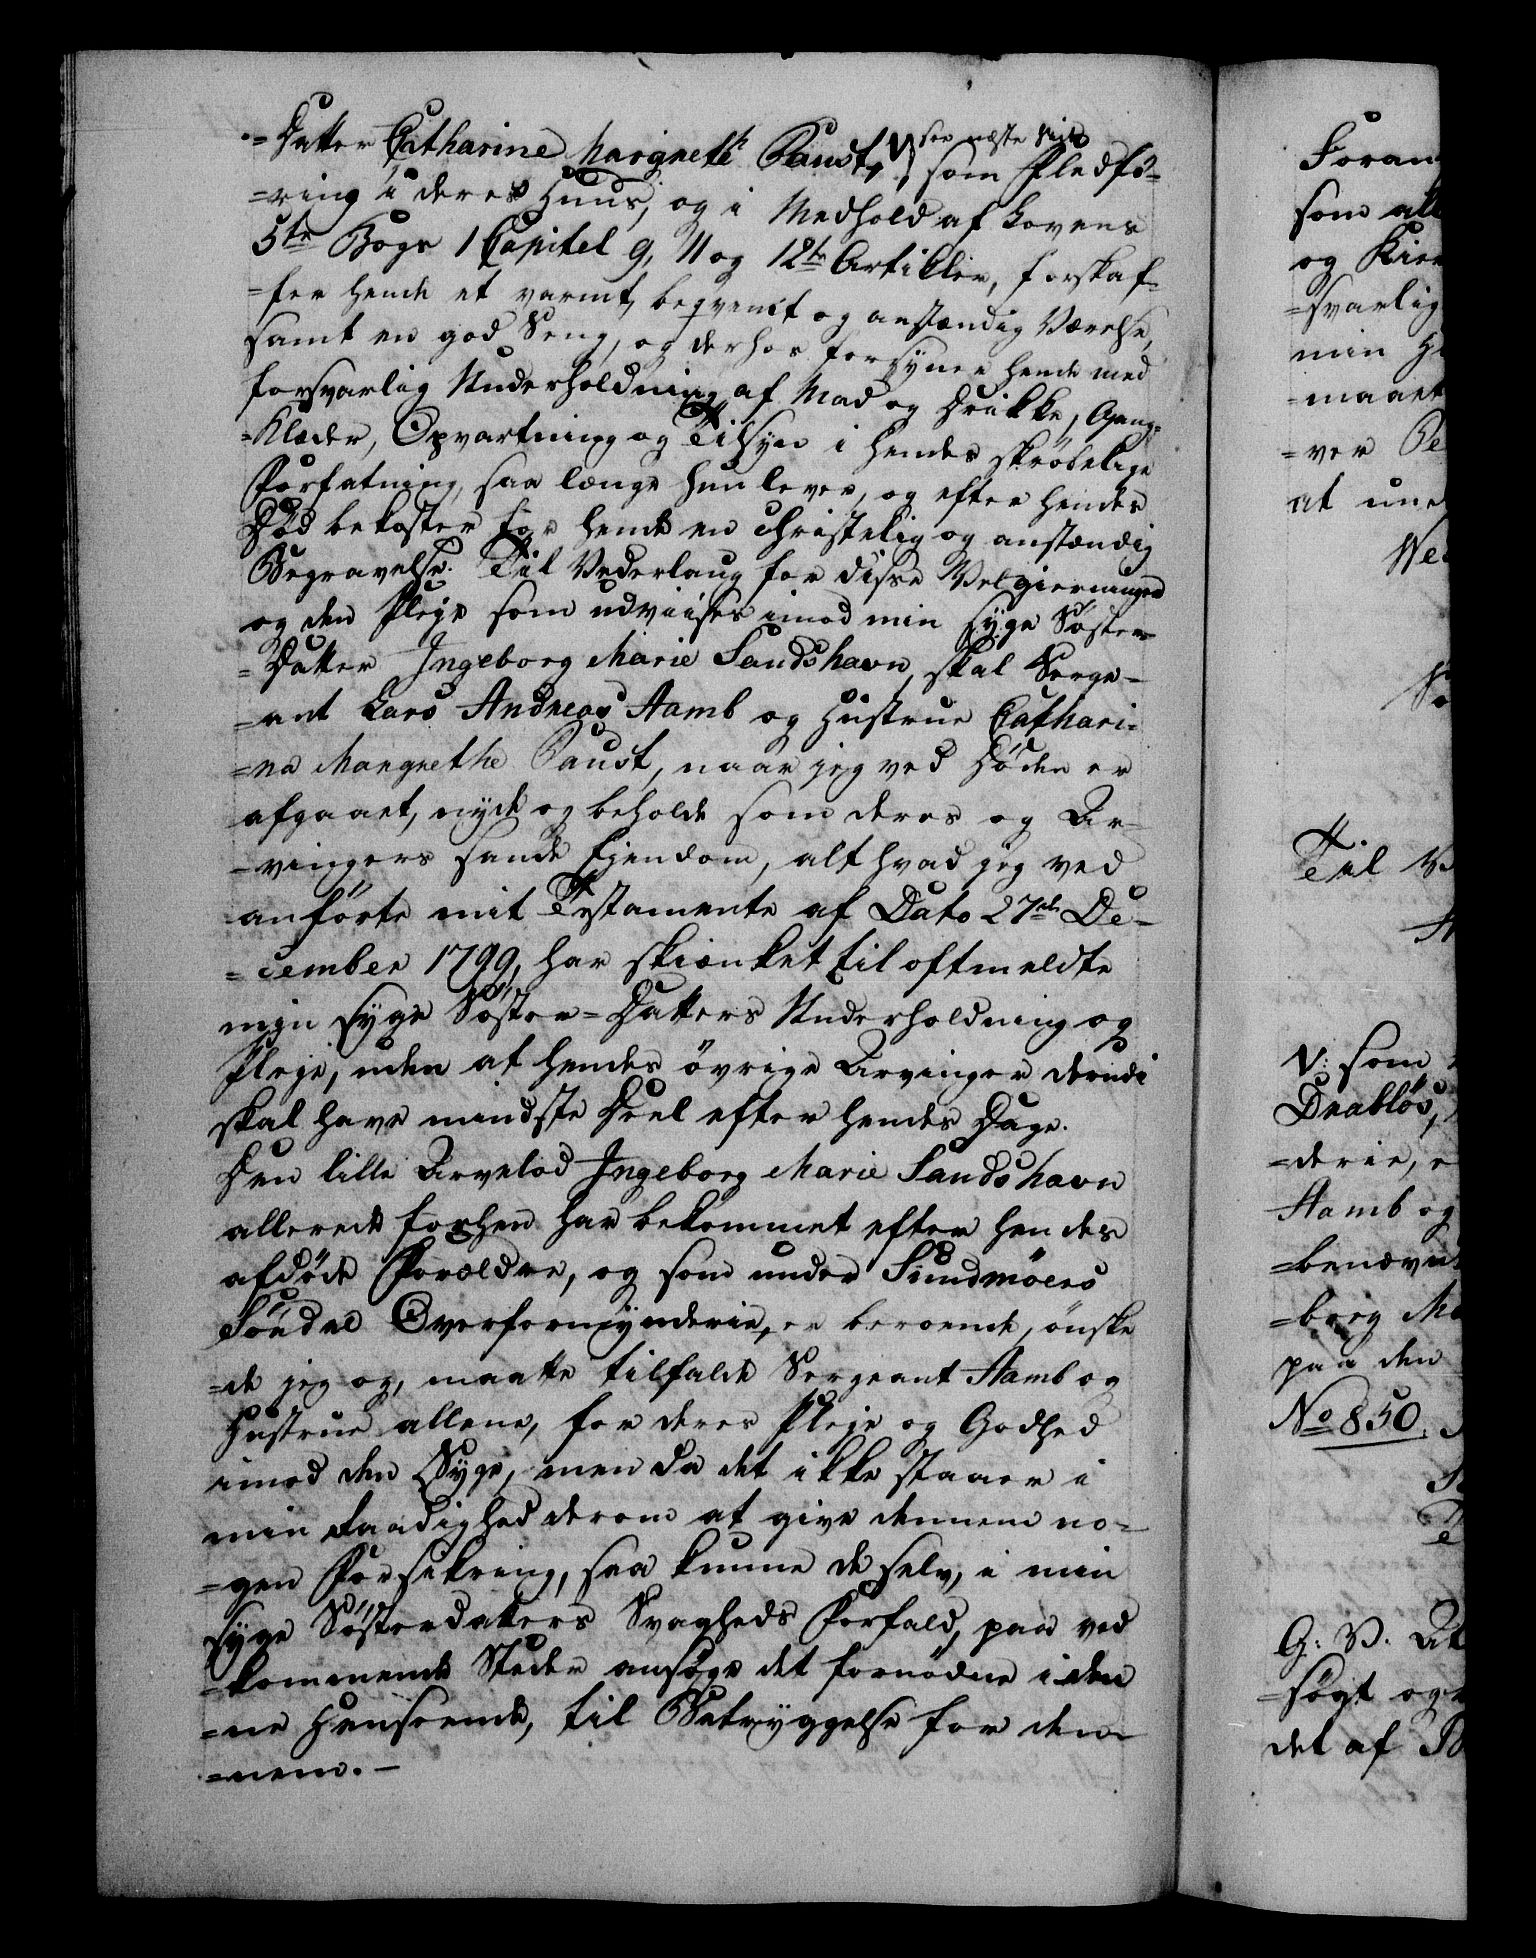 =Datter Catharine Margreth Paust, V see næste Side, som Fledfö=
=ring i deres Huus, og i Medhold af Lovens
5te Bogs 1 Capitel 9, 11 og 12te Artikler, forskaf=
=fer hende et varmt, beqvemt og anstændig Værelse,
samt en god Seng, og derhos forsyner hende med
forsvarlig Underholdning af Mad og Drikke, Gang=
=Klæder, Opvartning og Tilsyn i hendes skröbelige
Forfatning, saa længe hun lever, og efter hendes
Död bekoster for hende en Christelig og anstændig
Begravelse. Til Vederlaug for disse Velgierninger
og den Pleje som udviises imod min syge Söster
=Datter Ingeborg Marie Sandshavn, skal Serge=
=ant Lars Andreas Aamb og Hustrue Cathari=
=na Mangrethe Paust, naar jeg ved Döden er
afgaaet, nyde og beholde som deres og Ar=
=vingers sande Ejendom, alt hvad jeg ved
anförte mit Testamente af Dato 27de De=
=cember 1799, har skiænket til oftmeldte
min syge Söster=Datters Underholdning og
Pleje, uden at hendes övrige Arvinger derudi
skal have mindste Deel efter hendes Dage.
Den lille Arvelod Ingeborg Marie Sandshavn
allerede forhen har bekommet efter hendes
afdöde Forældre, og som under Sundmöers
Söndre Overformynderie, er beroende, önske
=de jeg og, maatte tilfalde Sergeant Aamb og
Hustrue allene, for deres Pleje og Godhed
imod den Syge, men da det ikke staaer i
min Raadighed derom at give dennem no=
=gen Forsikring, saa kunne de selv, i min
syge Sösterdatters Svagheds Forfald, paa ved
=kommende Steder ansöge det fornödne i den
=ne Henseende, til Betryggelse for den
=nem. –
Foran
som all
og Kie
=svarlig
min H
=maaet
=ver Pe
at un
We
Sö
Til V
A
V: som
Drablös,
=derie, e
Aamb og
=benævn
=borg Ma
paa den
No 850.
G: V. At
=sögt og
det af